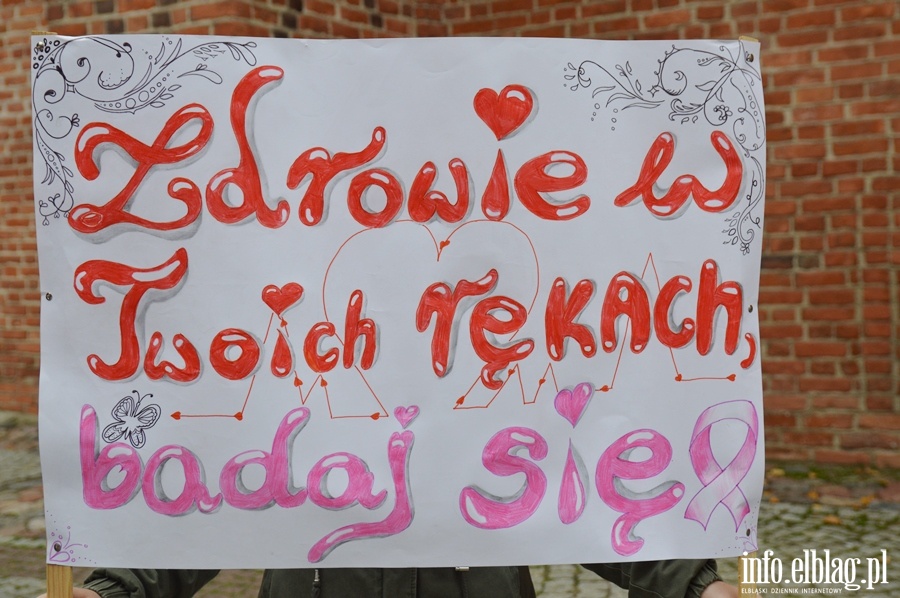 Zdrowie w
Twoich rękach,
badaj się
info.elblag.pl
ELBLĄSKI DZIENNIK INTERNETOWY